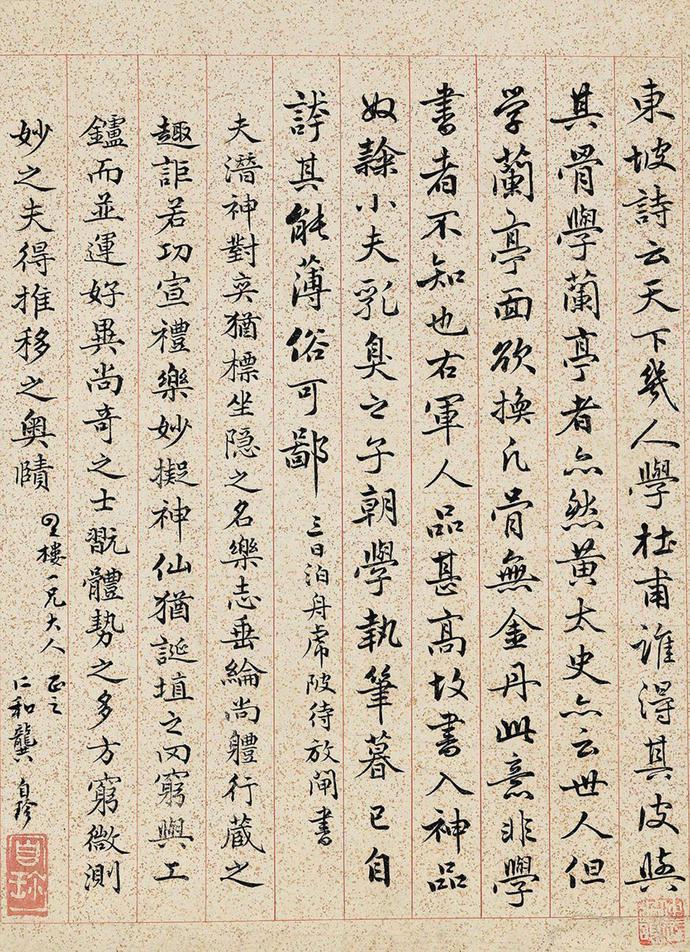 東坡詩云天下幾人學杜甫誰得其皮與
其骨學蘭亭者亦然黃太史亦云世人但
学蘭亭面欲換凡骨無金丹此意非學
書者不知也右軍人品甚高故書入神品
奴隸小夫乳臭之子朝學執筆暮已自
誇其能薄俗可鄙 三日泊舟虎陂待放閘書
夫潛神對弈猶標坐隐之名樂志垂綸尚體行藏之
趣詎若功宣禮樂妙擬神仙猶埏埴之罔窮與工
鑪而並運好異尚奇之士翫體勢之多方窮微測
妙之夫得推移之奧賾
星樓一兄大人 正之
仁和龔自珍
自珍